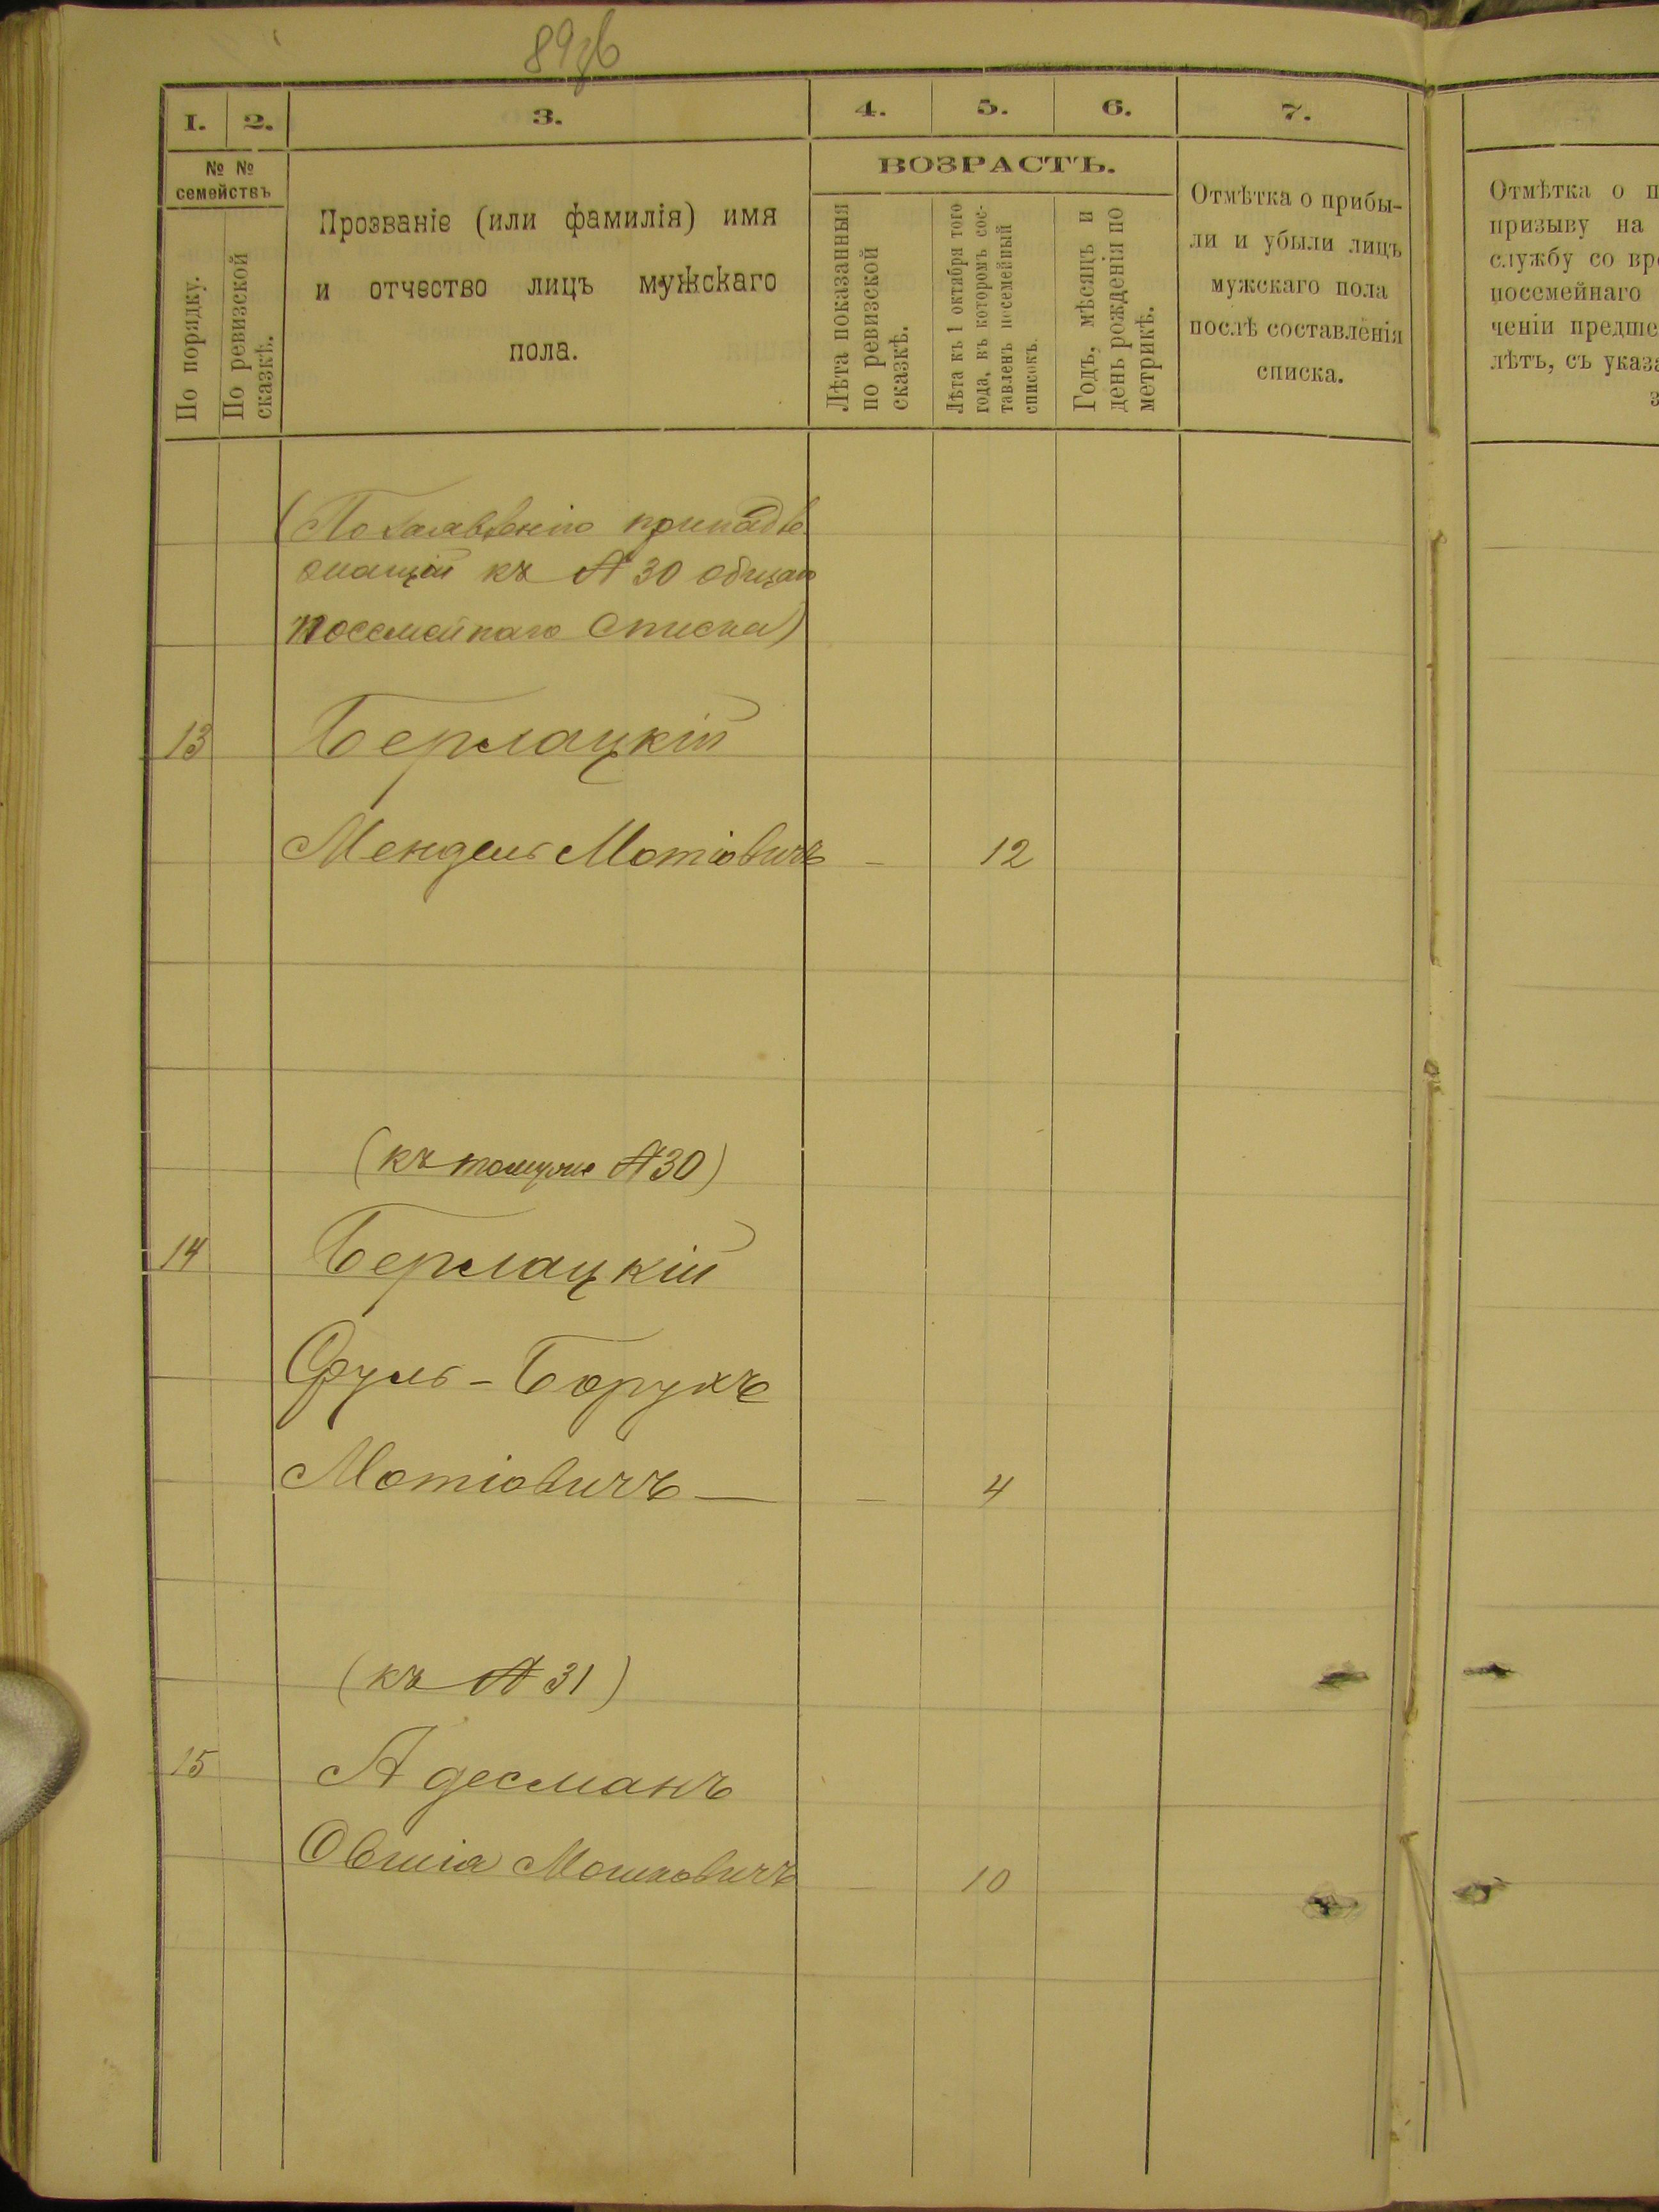 89об
1. 2. 3. 4. 5. 6. 7.
№ №
семействъ
По порядку.
По ревизской
сказкѣ.
Прозваніе (или фамилія) имя
и отчество лицъ мужскаго
пола.
ВОЗРАСТЪ.
Лѣта показанныя
по ревизской
сказкѣ.
Лѣта къ 1 октября того
года, въ которомъ сос-
тавленъ посемейный
списокъ.
Годъ, мѣсяцъ и
день рожденія по
метрикѣ.
Отмѣтка о прибы-
ли и убыли лицъ
мужскаго пола
послѣ составленія
списка.
Отмѣтка о п
призыву на
службу со вре
посемейнаго
ченіи предше
лѣтъ, съ указа
з
(По заявленію принадле
жащій къ № 30 общаго
посемейнаго списка)
13 Берлацкій
Мендель Мотіовичъ - 12
(къ тому же № 30)
14 Берлацкій
Сруль-Борухъ
Мотіовичъ — - 4
(къ № 31)
15 Адесманъ
Овшія Мошковичъ - 10